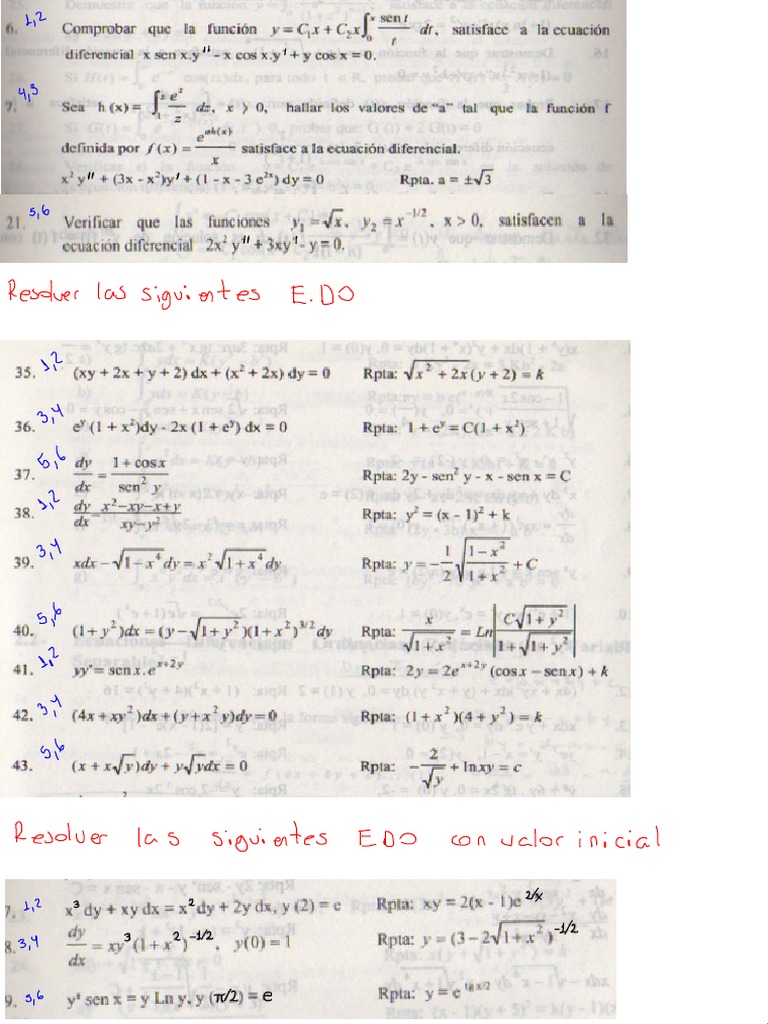 1,2
6. Comprobar que la función y = C₁x + C₂x∫₀ˣ sen t / t dt, satisface a la ecuación
diferencial x sen x.y'' - x cos x.y' + y cos x = 0.
4,3
7. Sea h (x) = ∫₁ˣ e^z / z dz, x > 0, hallar los valores de "a" tal que la función f
definida por f (x) = e^{ah(x)} / x satisface a la ecuación diferencial.
x² y'' + (3x - x²)y' + (1 - x - 3 e^{2x}) dy = 0 Rpta. a = ±√3
5,6
21. Verificar que las funciones y₁ = √x, y₂ = x^{-1/2}, x > 0, satisfacen a la
ecuación diferencial 2x² y'' + 3xy' - y = 0.
Resolver las siguientes E.DO
35. 1,2 (xy + 2x + y + 2) dx + (x² + 2x) dy = 0 Rpta: √(x² + 2x) (y + 2) = k
36. 3,4 e^y (1 + x²)dy - 2x (1 + e^y) dx = 0 Rpta: 1 + e^y = C(1 + x²)
37. 5,6 dy/dx = (1 + cos x) / sen² y Rpta: 2y - sen² y - x - sen x = C
38. 1,2 dy/dx = (x² – xy – x + y) / (xy – y²) Rpta: y² = (x - 1)² + k
39. 3,4 xdx – √(1 – x⁴) dy = x² √(1 + x⁴) dy Rpta: y = – 1/2 √((1 – x²) / (1 + x²)) + C
40. 5,6 (1 + y²)dx = (y – √(1 + y²))(1 + x²)^{3/2} dy Rpta: x / √(1 + x²) = Ln |C√(1 + y²) / (1 + √(1 + y²))|
41. 1,2 yy' = sen x.e^{x+2y} Rpta: 2y = 2e^{x+2y} (cos x – sen x) + k
42. 3,4 (4x + xy²)dx + (y + x² y)dy = 0 Rpta: (1 + x²)(4 + y²) = k
43. 5,6 (x + x√y)dy + y√y dx = 0 Rpta: – 2/√y + ln xy = c
Resolver las siguientes EDO con valor inicial
7. 1,2 x³ dy + xy dx = x² dy + 2y dx, y (2) = e Rpta: xy = 2(x - 1)e^{2/x}
8. 3,4 dy/dx = xy³ (1 + x²)^{-1/2}, y(0) = 1 Rpta: y = (3 – 2√(1 + x²))^{-1/2}
9. 5,6 y' sen x = y Ln y, y (π/2) = e Rpta: y = e^{tg x/2}